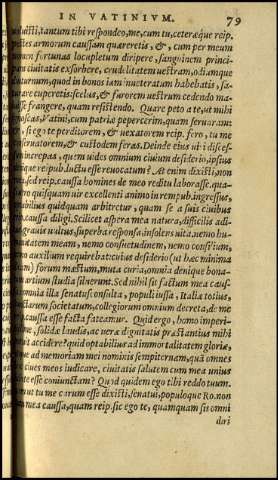 IN VATINIVM. 79
tantum tibi respondeo, me cum tu, ceteræque reip.
pestes armorum caussam quæreretis, & , cum per meum
nomen fortunas locupletum diripere, sanguinem princi-
civitatis exsorbere, crudelitatem uestram, odiumque
quod in bonos iam inueteratum habebatis, sa-
cuperetis: scelus, & furorem uestrum cedendo ma-
frangere, quam resistendo. Quare peto a te, ut mihi
Vatini, cum patriæ pepercerim, quam seruaram:
si ego te perditorem, & uexatorem reip. fero, tu me
& custodem feras. Deinde eius uiri disces-
increpas, quem uides omnium ciuium desiderio, ipsius
reipub. luctu esse reuocatum? At enim dixisti, non
sed reip. caussa homines de meo reditu laborasse. qua-
quisquam uir excellenti animo in rempub. ingressus,
quidquam arbitretur, quam se a suis ciuibus
caussa diligi. Scilicet aspera mea natura, difficilis adi-
grauis uultus, superba responsa, insolens uita. nemo hu-
meam, nemo consuetudinem, nemo consilium,
auxilium requirebat: cuius desiderio (ut hæc minima
forum mæstum, muta curia, omnia denique bona-
artium studia siluerunt. Sed nihil sit factum mea caus-
omnia illa senatus consulta, populi iussa, Italiæ totius,
societatum, collegiorum omnium decreta, de me
caussa esse facta fateamur. Quid ergo, homo imperi-
solidæ laudis, ac ueræ dignitatis præstantius mihi
accidere? quid optabilius ad immortalitatem gloriæ,
ad memoriam mei nominis sempiternam, quam omnes
ciues meos iudicare, ciuitatis salutem cum mea unius
esse coniunctam? Quod quidem ego tibi reddo tuum.
ut tu me carum esse dixisti, senatui, populoque Ro. non
mea caussa, quam reip. sic ego te, quamquam sis omni
diri